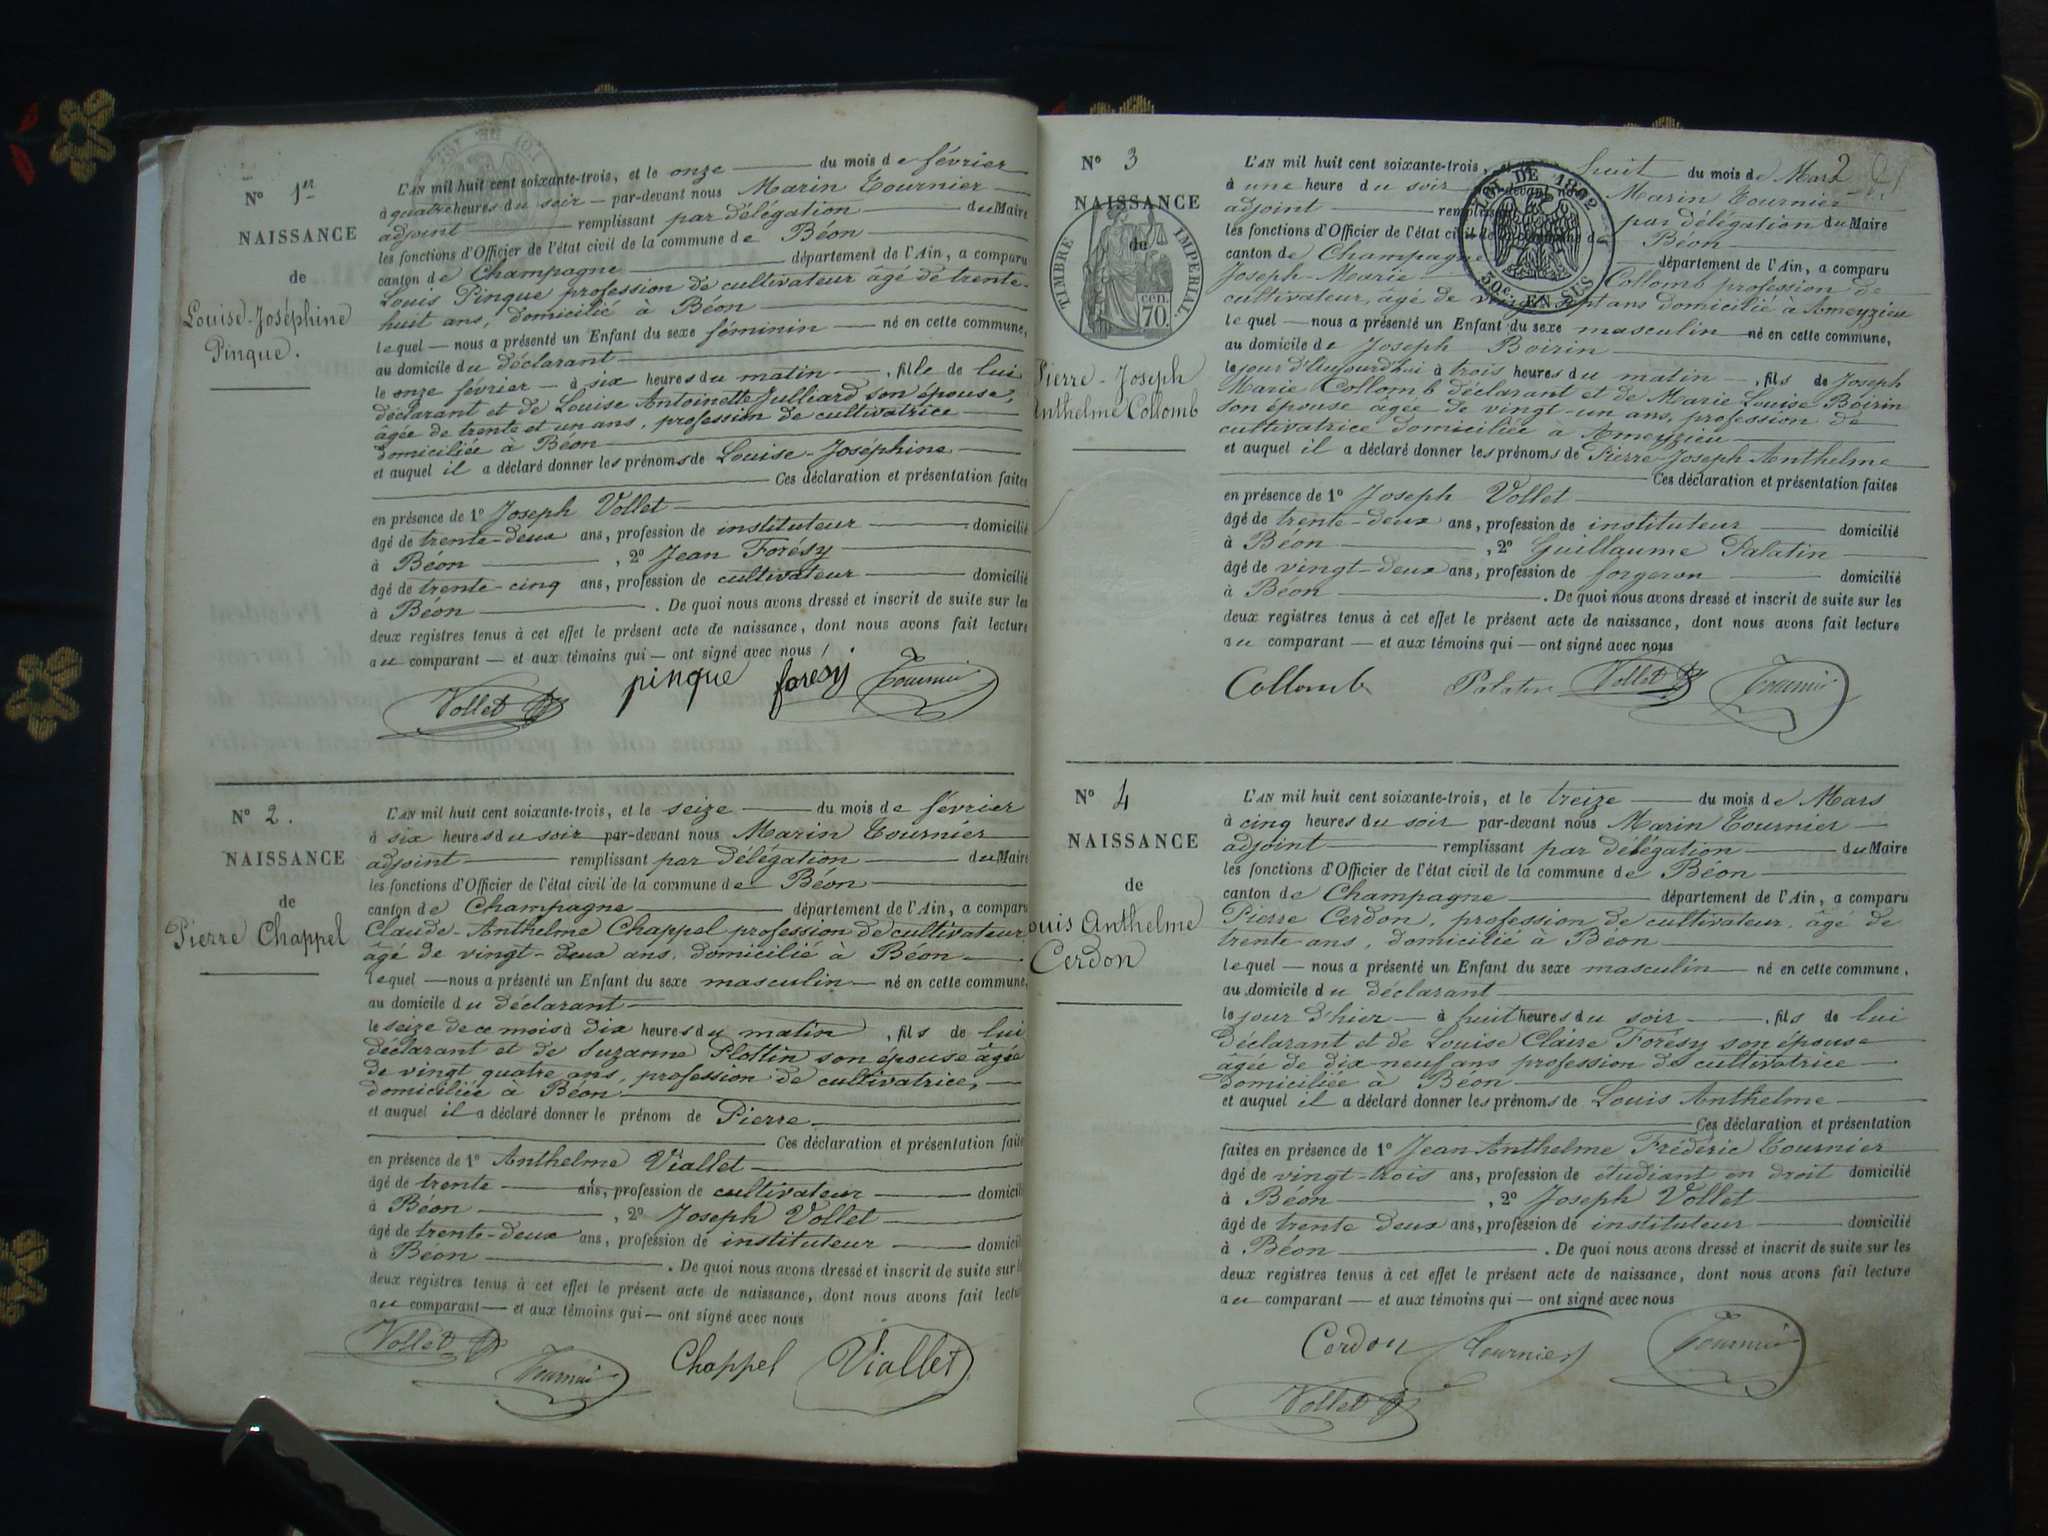 N° 1er
NAISSANCE
de
Louise-Joséphine
Pinque.
L'AN mil huit cent soixante-trois, et le onze du mois de février
à quatre heures du soir par-devant nous Marin Tournier
adjoint remplissant par délégation du Maire
les fonctions d'Officier de l'état civil de la commune de Béon
canton de Champagne département de l'Ain, a comparu
Louis Pinque profession de cultivateur âgé de trente-
huit ans, domicilié à Béon
lequel nous a présenté un Enfant du sexe féminin né en cette commune,
au domicile du déclarant
le onze février à six heures du matin, fille de lui
déclarant et de Louise Antoinette Julliard son épouse,
âgée de trente et un ans, profession de cultivatrice
domiciliée à Béon
et auquel il a déclaré donner les prénoms de Louise-Joséphine
Ces déclaration et présentation faites
en présence de 1° Joseph Vollet
âgé de trente-deux ans, profession de instituteur domicilié
à Béon, 2° Jean Forésy
âgé de trente-cinq ans, profession de cultivateur domicilié
à Béon. De quoi nous avons dressé et inscrit de suite sur les
deux registres tenus à cet effet le présent acte de naissance, dont nous avons fait lecture
au comparant et aux témoins qui ont signé avec nous
Vollet pinque foresy Tournier
N° 2.
NAISSANCE
de
Pierre Chappel
L'AN mil huit cent soixante-trois, et le seize du mois de février
à six heures du soir par-devant nous Marin Tournier
adjoint remplissant par délégation du Maire
les fonctions d'Officier de l'état civil de la commune de Béon
canton de Champagne département de l'Ain, a comparu
Claude-Anthelme Chappel profession de cultivateur
âgé de vingt-deux ans, domicilié à Béon
lequel nous a présenté un Enfant du sexe masculin né en cette commune,
au domicile du déclarant
le seize de ce mois à dix heures du matin, fils de lui
déclarant et de Suzanne Plottin son épouse âgée
de vingt quatre ans, profession de cultivatrice,
domiciliée à Béon
et auquel il a déclaré donner le prénom de Pierre
Ces déclaration et présentation faite
en présence de 1° Anthelme Viallet
âgé de trente ans, profession de cultivateur domicili
à Béon, 2° Joseph Vollet
âgé de trente-deux ans, profession de instituteur domicil
à Béon. De quoi nous avons dressé et inscrit de suite sur l
deux registres tenus à cet effet le présent acte de naissance, dont nous avons fait lectu
au comparant et aux témoins qui ont signé avec nous
Vollet Tournier Chappel Viallet
N° 3
NAISSANCE
de
TIMBRE IMPÉRIAL
cen.
70.
Pierre-Joseph
Anthelme Collomb
2
LOI DE 1862
50c. EN SUS
L'AN mil huit cent soixante-trois, huit du mois de Mars
à une heure du soir par-devant nous Marin Tournier
adjoint remplissant par délégation du Maire
les fonctions d'Officier de l'état civil de la commune de Béon
canton de Champagne département de l'Ain, a comparu
Joseph-Marie Collomb profession de
cultivateur, âgé de vingt-sept ans domicilié à Ameyzieu
lequel nous a présenté un Enfant du sexe masculin né en cette commune,
au domicile de Joseph Boirin
le jour d'aujourd'hui à trois heures du matin, fils de Joseph
Marie Collomb déclarant et de Marie Louise Boirin
son épouse âgée de vingt-un ans, profession de
cultivatrice domiciliée à Ameyzieu
et auquel il a déclaré donner les prénoms de Pierre Joseph Anthelme
Ces déclaration et présentation faites
en présence de 1° Joseph Vollet
âgé de trente-deux ans, profession de instituteur domicilié
à Béon, 2° Guillaume Palatin
âgé de vingt-deux ans, profession de forgeron domicilié
à Béon. De quoi nous avons dressé et inscrit de suite sur les
deux registres tenus à cet effet le présent acte de naissance, dont nous avons fait lecture
au comparant et aux témoins qui ont signé avec nous
Collomb Palatin Vollet Tournier
N° 4
NAISSANCE
de
ouis Anthelme
Cerdon
L'AN mil huit cent soixante-trois, et le treize du mois de Mars
à cinq heures du soir par-devant nous Marin Tournier
adjoint remplissant par délégation du Maire
les fonctions d'Officier de l'état civil de la commune de Béon
canton de Champagne département de l'Ain, a comparu
Pierre Cerdon, profession de cultivateur, âgé de
trente ans, domicilié à Béon
lequel nous a présenté un Enfant du sexe masculin né en cette commune,
au domicile du déclarant
le jour d'hier à huit heures du soir, fils de lui
déclarant et de Louise Claire Forésy son épouse
âgée de dix-neuf ans profession de cultivatrice
domiciliée à Béon
et auquel il a déclaré donner les prénoms de Louis Anthelme
Ces déclaration et présentation
faites en présence de 1° Jean Anthelme Frédéric Tournier
âgé de vingt-trois ans, profession de étudiant en droit domicilié
à Béon, 2° Joseph Vollet
âgé de trente deux ans, profession de instituteur domicilié
à Béon. De quoi nous avons dressé et inscrit de suite sur les
deux registres tenus à cet effet le présent acte de naissance, dont nous avons fait lecture
au comparant et aux témoins qui ont signé avec nous
Cerdon Tournier Tournier
Vollet